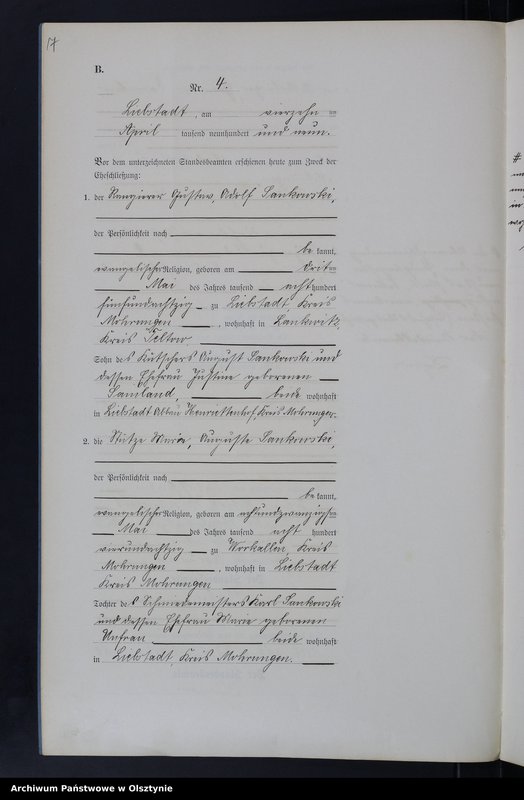 17
B.
Nr. 4.
Liebstadt, am vierzehn ten
April tausend neunhundert und neun.
Vor dem unterzeichneten Standesbeamten erschienen heute zum Zweck der
Eheschließung:
1. der Rangierer Gustav, Adolf Sankowski,
der Persönlichkeit nach
be kannt,
evangelischer Religion, geboren am drit ten
Mai des Jahres tausend acht hundert
fünfundachtzig zu Liebstadt, Kreis
Mohrungen, wohnhaft in Lankwitz,
Kreis Teltow
Sohn des Kutschers August Sankowski und
dessen Ehefrau Justine geborenen
Samland, beide wohnhaft
in Liebstadt Abbau Henriettenhof, Kreis Mohrungen.
2. die Stütze Marie, Auguste Sankowski,
der Persönlichkeit nach
be kannt,
evangelischer Religion, geboren am achtundzwanzigsten
Mai des Jahres tausend acht hundert
vierundachtzig zu Workallen, Kreis
Mohrungen, wohnhaft in Liebstadt
Kreis Mohrungen
Tochter des Schmiedemeisters Karl Sankowski
und dessen Ehefrau Marie geborenen
beide wohnhaft
in Liebstadt, Kreis Mohrungen.
Archiwum Państwowe w Olsztynie